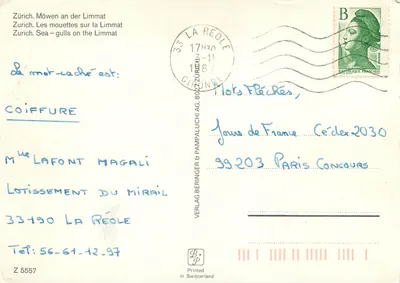 Zürich. Möwen an der Limmat
Zurich. Les mouettes sur la Limmat
Zurich. Sea – gulls on the Limmat
Le mot-caché est:
COIFFURE
Mlle LAFONT MAGALI
LOTISSEMENT DU MIRAIL
33190 LA RÉOLE
Tel: 56-61-12-97
Z 5557
VERLAG BERINGER & PAMPALUCHI AG, 8027 ZÜRICH
Printed
in Switzerland
33 LA REOLE
GIRONDE
B
Mots Fléchés,
Jours de France Cédex 2030
99203 PARIS CONCOURS